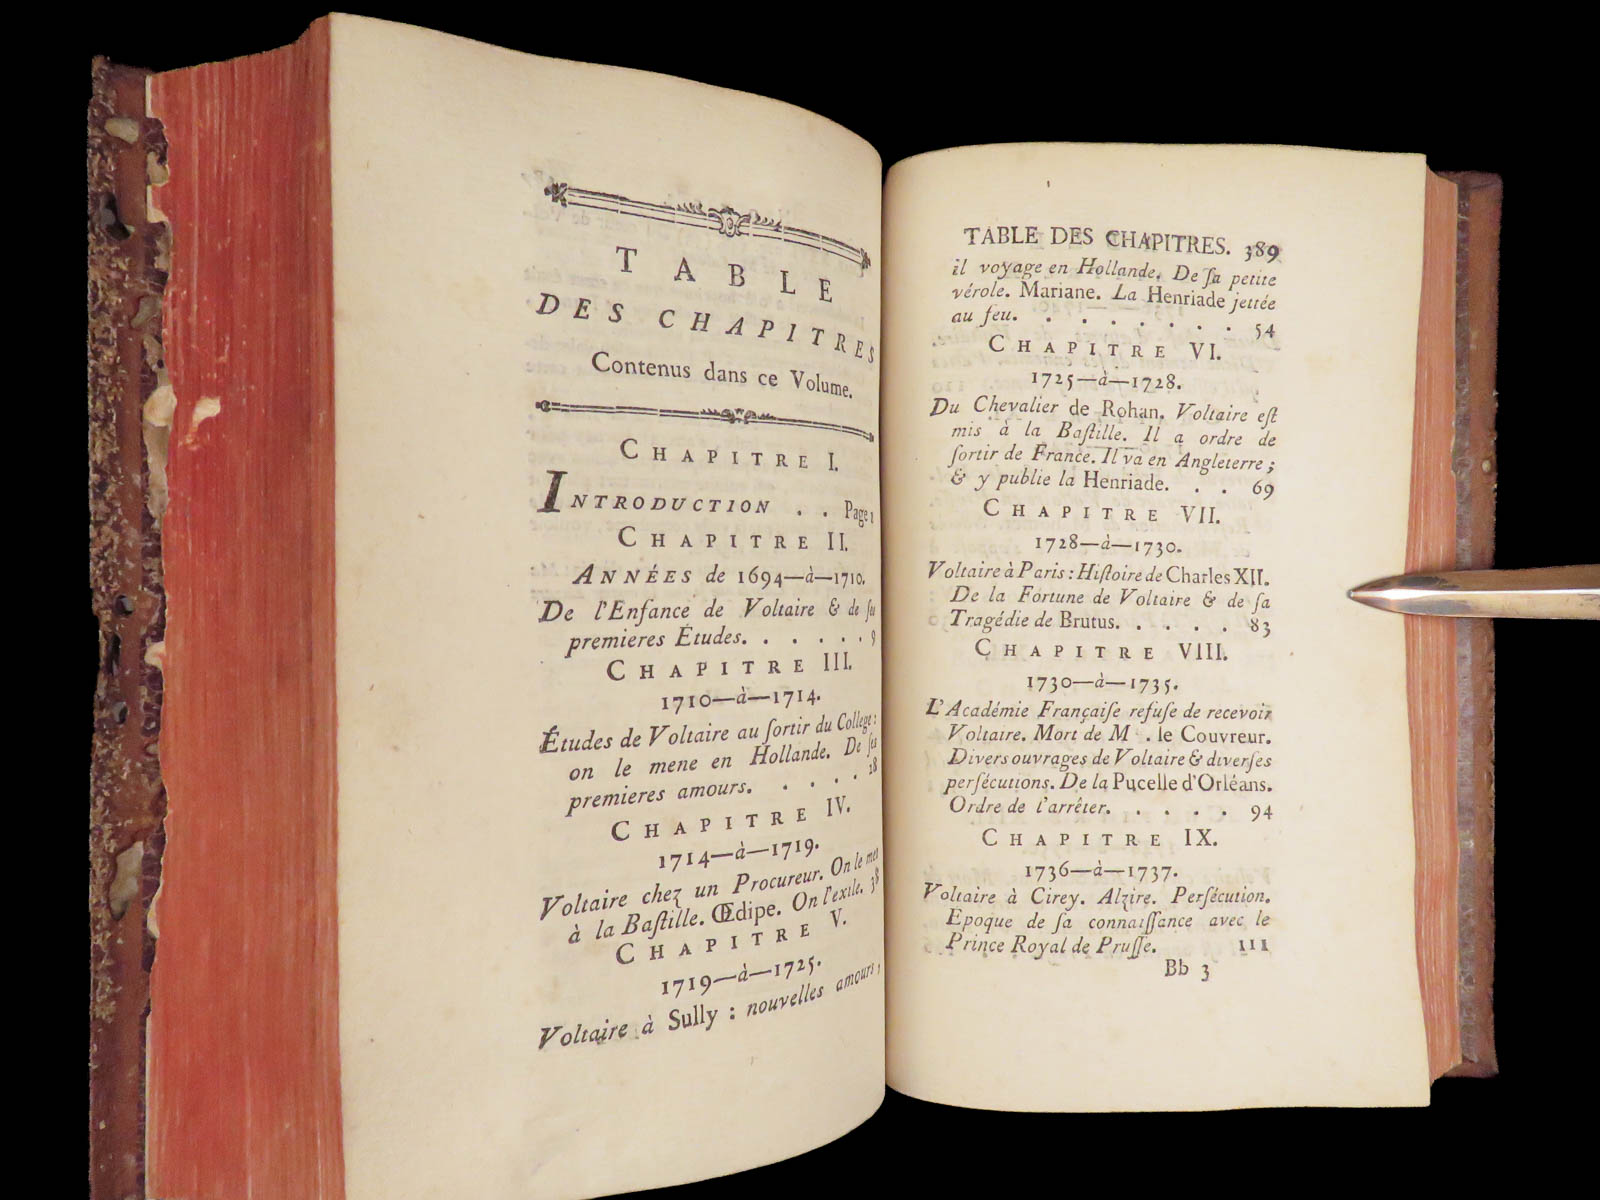 TABLE
DES CHAPITRES
Contenus dans ce Volume.
CHAPITRE I.
INTRODUCTION . . Page 1
CHAPITRE II.
ANNÉES de 1694—à—1710.
De l'Enfance de Voltaire & de ses
premieres Études. . . . . . . 9
CHAPITRE III.
1710—à—1714.
Études de Voltaire au ſortir du College:
on le mene en Hollande. De ſes
premieres amours. . . . . 18
CHAPITRE IV.
1714—à—1719.
Voltaire chez un Procureur. On le met
à la Baſtille. Œdipe. On l'exile. 38
CHAPITRE V.
1719—à—1725.
Voltaire à Sully : nouvelles amours,
TABLE DES CHAPITRES. 389
il voyage en Hollande. De ſa petite
vérole. Mariane. La Henriade jettée
au feu. . . . . . . . 54
CHAPITRE VI.
1725—à—1728.
Du Chevalier de Rohan. Voltaire eſt
mis à la Baſtille. Il a ordre de
ſortir de France. Il va en Angleterre ;
& y publie la Henriade. . . 69
CHAPITRE VII.
1728—à—1730.
Voltaire à Paris : Hiſtoire de Charles XII.
De la Fortune de Voltaire & de ſa
Tragédie de Brutus. . . . . 83
CHAPITRE VIII.
1730—à—1735.
L'Académie Françaiſe refuſe de recevoir
Voltaire. Mort de M . le Couvreur.
Divers ouvrages de Voltaire & diverſes
perſécutions. De la Pucelle d'Orléans.
Ordre de l'arrêter. . . . . 94
CHAPITRE IX.
1736—à—1737.
Voltaire à Cirey. Alzire. Perſécution.
Epoque de ſa connaiſſance avec le
Prince Royal de Pruſſe. 111
Bb 3